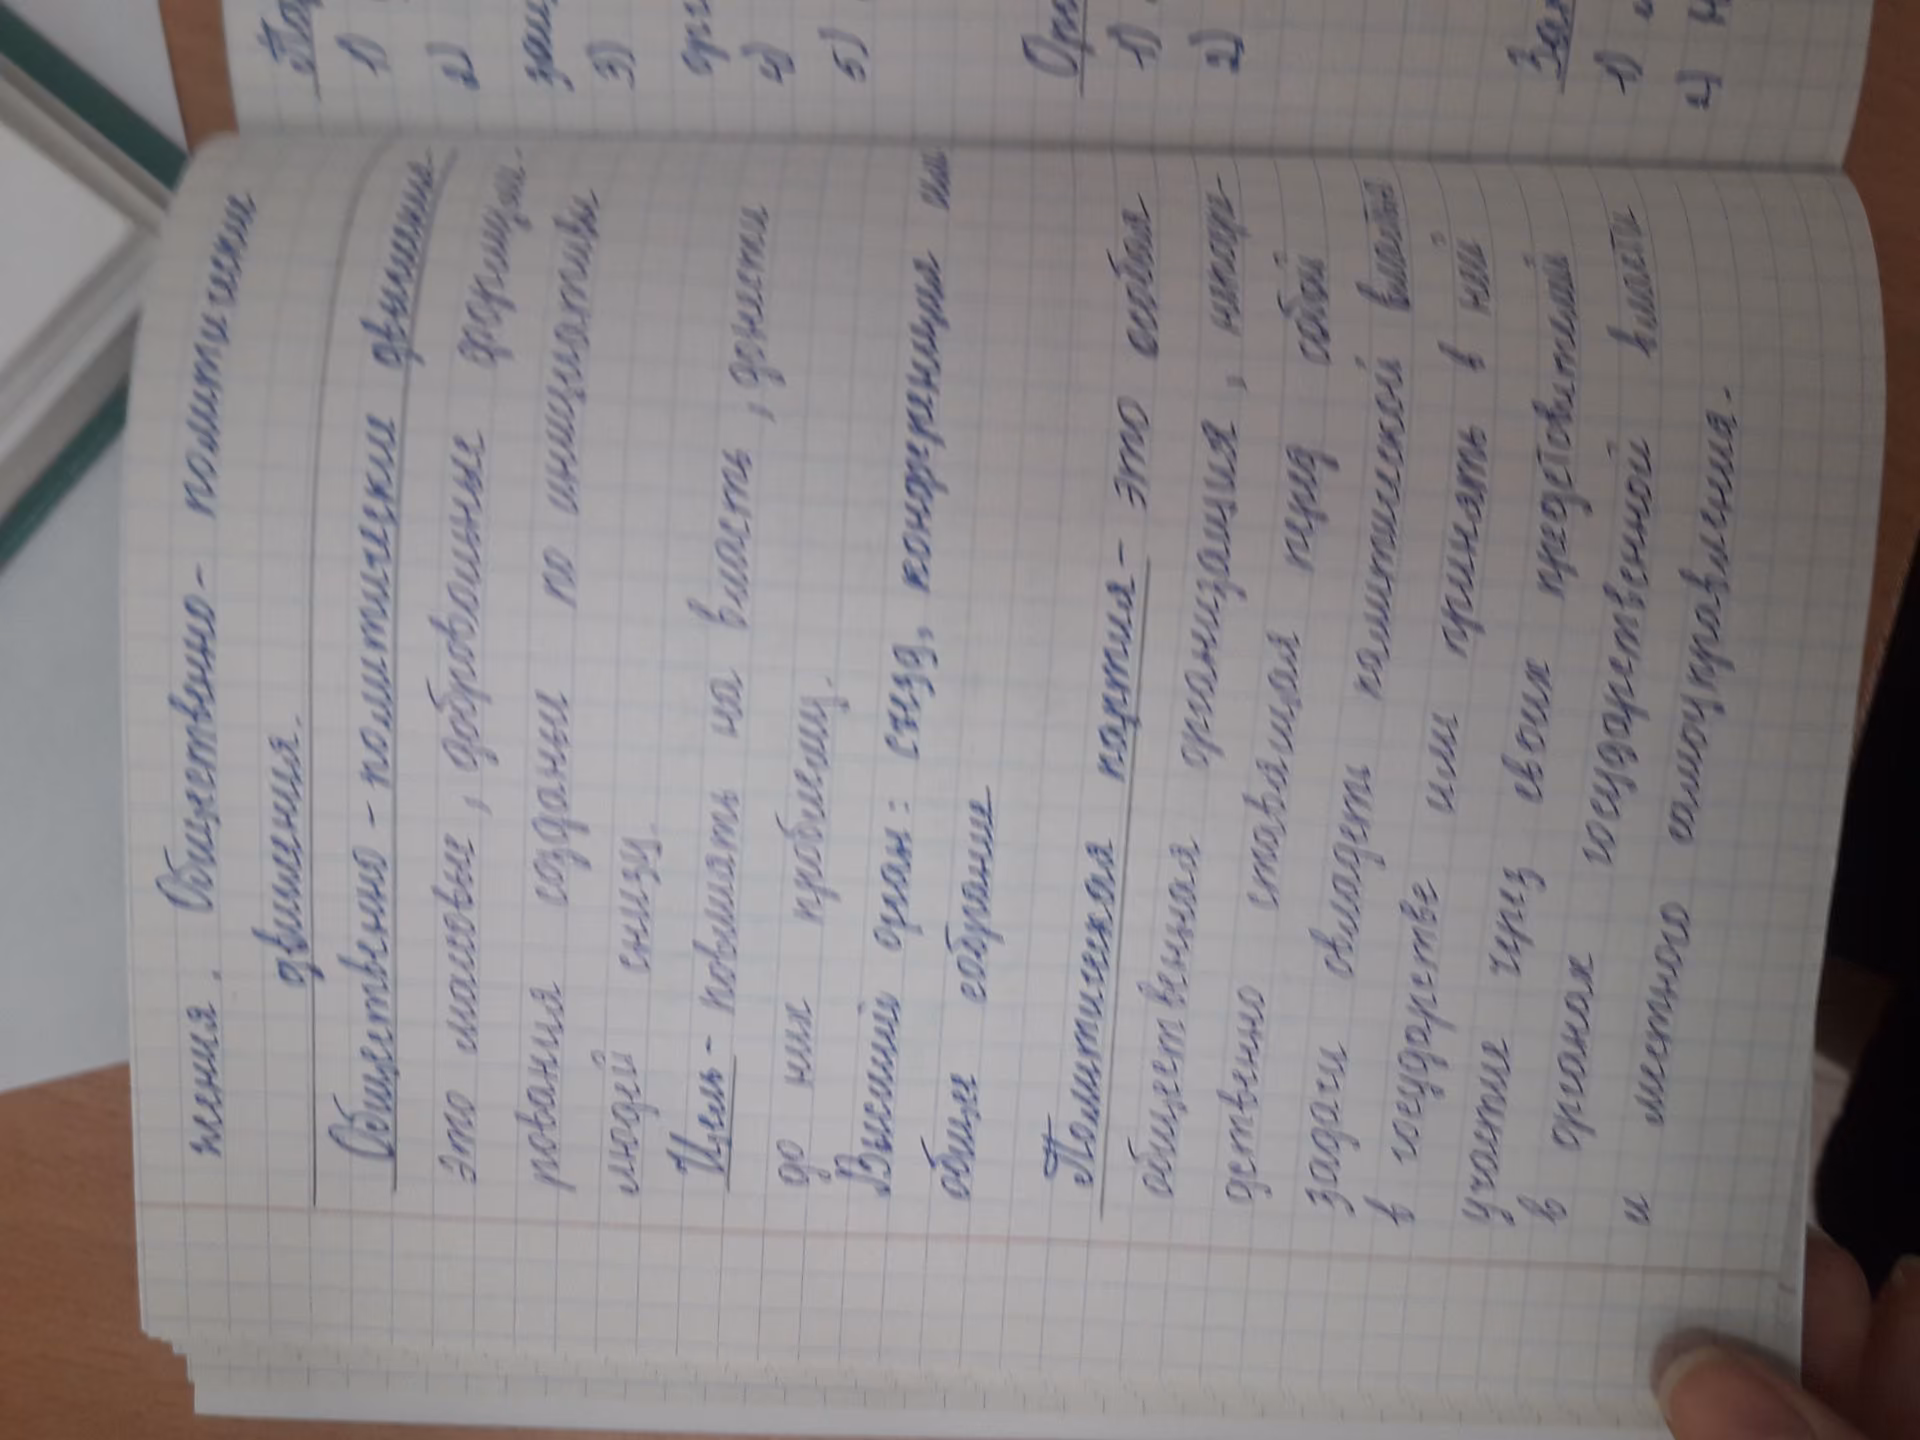 жения. Общественно - политически
движения.
Общественно - политически движения-
это массовые, добровольные формиро-
рования созданы по инициативы
людей снизу.
Цель - повлиять на власть, донести
до них проблему.
Высший орган: съезд, конференция или
общее собрание
Политическая партия - это особая
общественная организация, непоср-
дственно ставящая перед собой
задачи овладеть политической властью
в государстве или принять в ней
участие через своих представителей
в органах государственной власти
и местного самоуправления.
1)
2)
3)
4)
5)
1)
2)
1)
2)